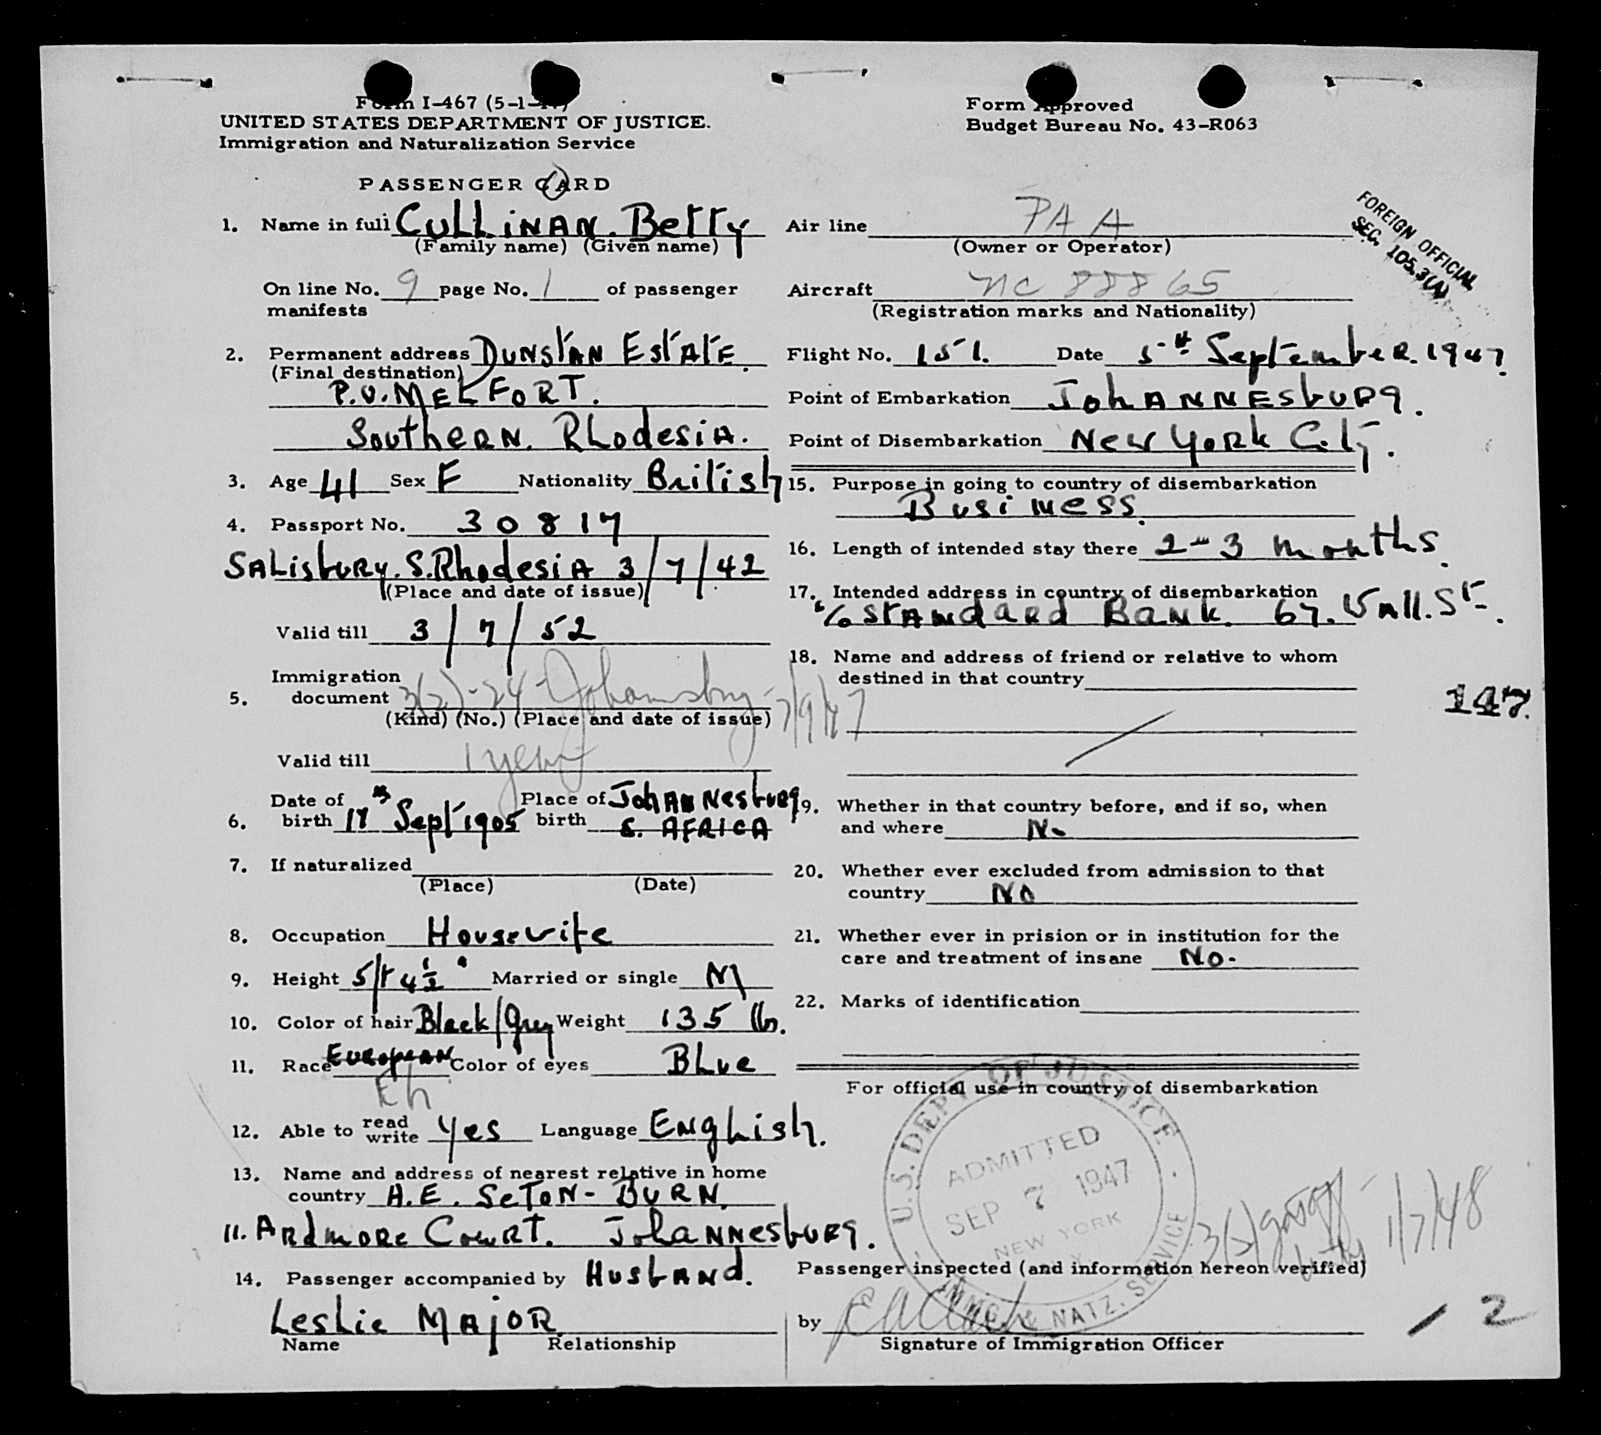 Form I-467
UNITED STATES DEPARTMENT OF JUSTICE.
Immigration and Naturalization Service
Form Approved
Budget Bureau No. 43-R063
PASSENGER CARD
FOREIGN OFFICIAL
SEC.
1. Name in full CULLINAN. Betty
(Family name) (Given name)
On line No. 9 page No. 1 of passenger
manifests
2. Permanent address DUNSTAN ESTATE.
(Final destination)
P.O. MELFORT.
Southern. Rhodesia.
3. Age 41 Sex F Nationality British
4. Passport No. 30817
SALisbury. S. Rhodesia 3/7/42
(Place and date of issue)
Valid till 3/7/52
Immigration
5. document 3(2)-24-
(Kind) (No.) (Place and date of issue) 7/9/47
Valid till 1 year
6. Date of birth 17th Sept 1905 Place of birth Johannesburg
S. AFRICA
7. If naturalized
(Place) (Date)
8. Occupation Housewife
9. Height 5ft 4½" Married or single M
10. Color of hair Black/Grey Weight 135 lb.
11. Race European Color of eyes BLue
Eh
12. Able to read write Yes Language English.
13. Name and address of nearest relative in home
country H.E. SETON-BURN.
11. Ardmore Court. Johannesburg.
14. Passenger accompanied by Husband.
Leslie Major
Name Relationship
Air line PAA
(Owner or Operator)
Aircraft NC 88865
(Registration marks and Nationality)
Flight No. 151. Date 5th September. 1947.
Point of Embarkation Johannesburg.
Point of Disembarkation New York City.
15. Purpose in going to country of disembarkation
Business.
16. Length of intended stay there 2-3 months.
17. Intended address in country of disembarkation
c/o Standard Bank. 67. Wall. St.
18. Name and address of friend or relative to whom
destined in that country
147.
19. Whether in that country before, and if so, when
and where No
20. Whether ever excluded from admission to that
country No
21. Whether ever in prision or in institution for the
care and treatment of insane No.
22. Marks of identification
For official use in country of disembarkation
U.S. DEPT. OF JUSTICE
ADMITTED
SEP 7 1947
NEW YORK
IMMG. & NATZ. SERVICE
1/7/48
Passenger inspected (and information hereon verified)
by
Signature of Immigration Officer
2